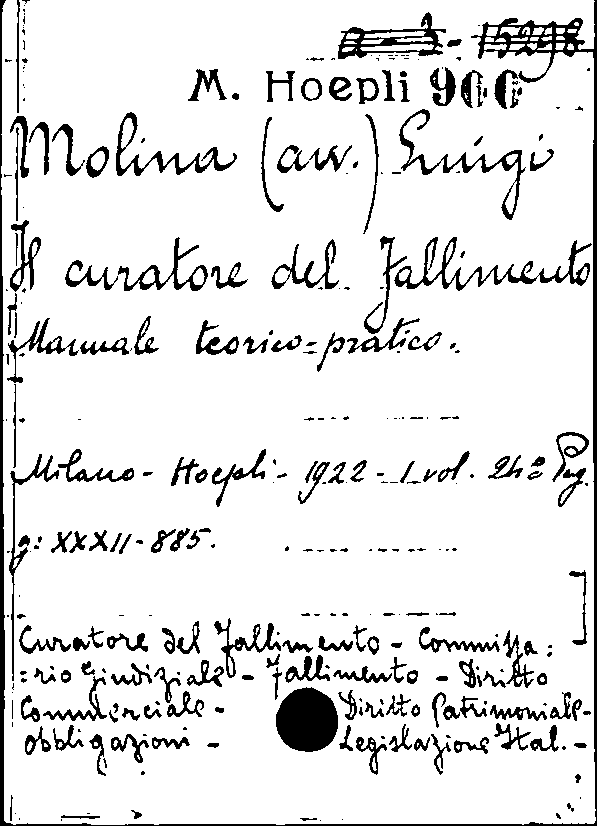 a - 3 - 15298
M. Hoepli 900
Molina (avv.) Luigi
Il curatore del fallimento
Manuale teorico=pratico.
Milano - Hoepli - 1922 - 1 vol. 24º Pag
g: XXXII - 885.
Curatore del fallimento - Commissa:
:rio Giudiziale - Fallimento - Diritto
Commerciale - Diritto Patrimoniale -
Obbligazioni - Legislazione Ital. -